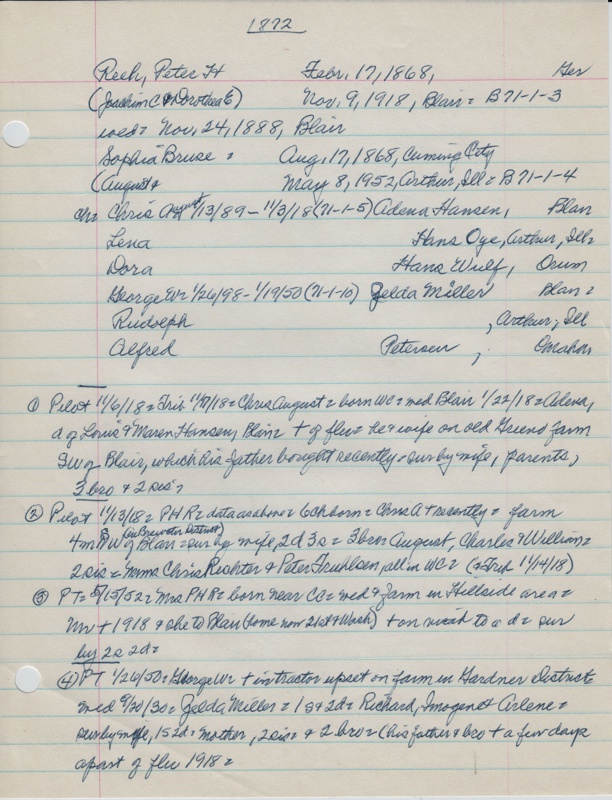 1872
Rech, Peter H Febr. 17, 1868, Ger
(Joachim C & Dorothea E) Nov. 9, 1918, Blair = B 71-1-3
wed = Nov. 24, 1888, Blair
Sophia Bruse = Aug. 17, 1868, Cuming City
(August & May 8, 1952, Arthur, Ill = B 71-1-4
ch = Chris August 1/13/89 - 11/3/18 (71-1-5) Adena Hansen, Blair
Lena Hans Oye, Arthur, Ill =
Dora Hans Wulf, Orum
George Wm 1/26/98 - 1/19/50 (71-1-10) Zelda Miller Blair =
Rudolph , Arthur, Ill
Alfred Petersen , Omaha
① Pilot 11/6/18 = Trib 11/7/18 = Chris August = born WC = med Blair 1/22/18 = Adena,
d of Louis & Maren Hansen, Blair + of flu = he & wife on old farm
SW of Blair, which his father bought recently = sur by wife, parents,
3 bro & 2 sis =
② Pilot 11/13/18 = PHR = data as above = 6 ch born = Chris A + recently = farm
(in Brewster District)
4m SW of Blair = sur by wife, 2d 3s = 3 bro August, Charles & William =
2 sis = Mmes Chris Richter & Peter Truhlsen, all in WC = (& Trib 11/14/18)
③ PT = 5/15/52 = Mrs PHR = born near CC = med & farm in Hillside area =
Mr + 1918 & she to Blair (home now 21st & Wash) + on visit to a d = sur
by 2s 2d =
④ PT 1/26/50 = George Wm + in tractor upset on farm in Gardner District =
med 9/30/30 = Zelda Miller = 1s & 2d = Richard, Imogene & Arlene =
sur by wife, 1s 2d = mother, 2 sis = & 2 bro = (his father & bro + a few days
apart of flu 1918 =